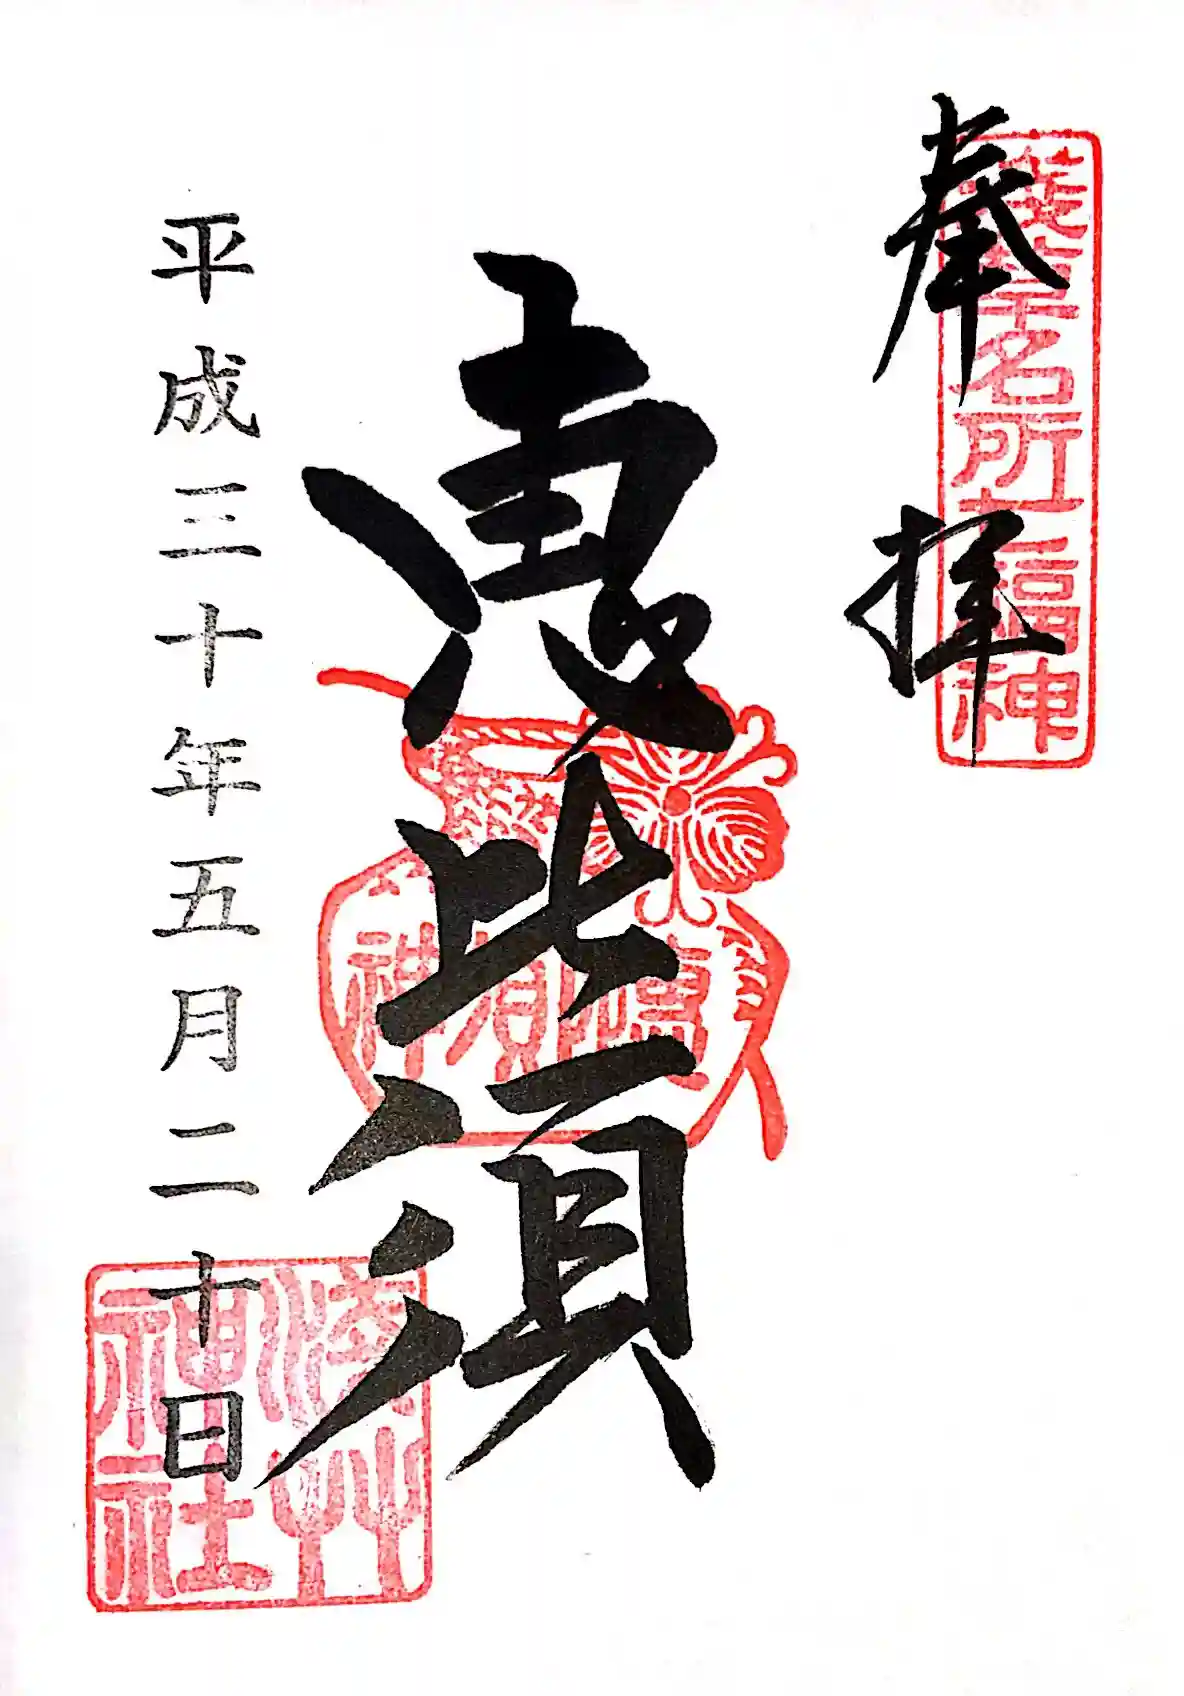 奉拝
淺草名所七福神
恵比須
恵比須神
平成三十年五月二十日
浅艸神社